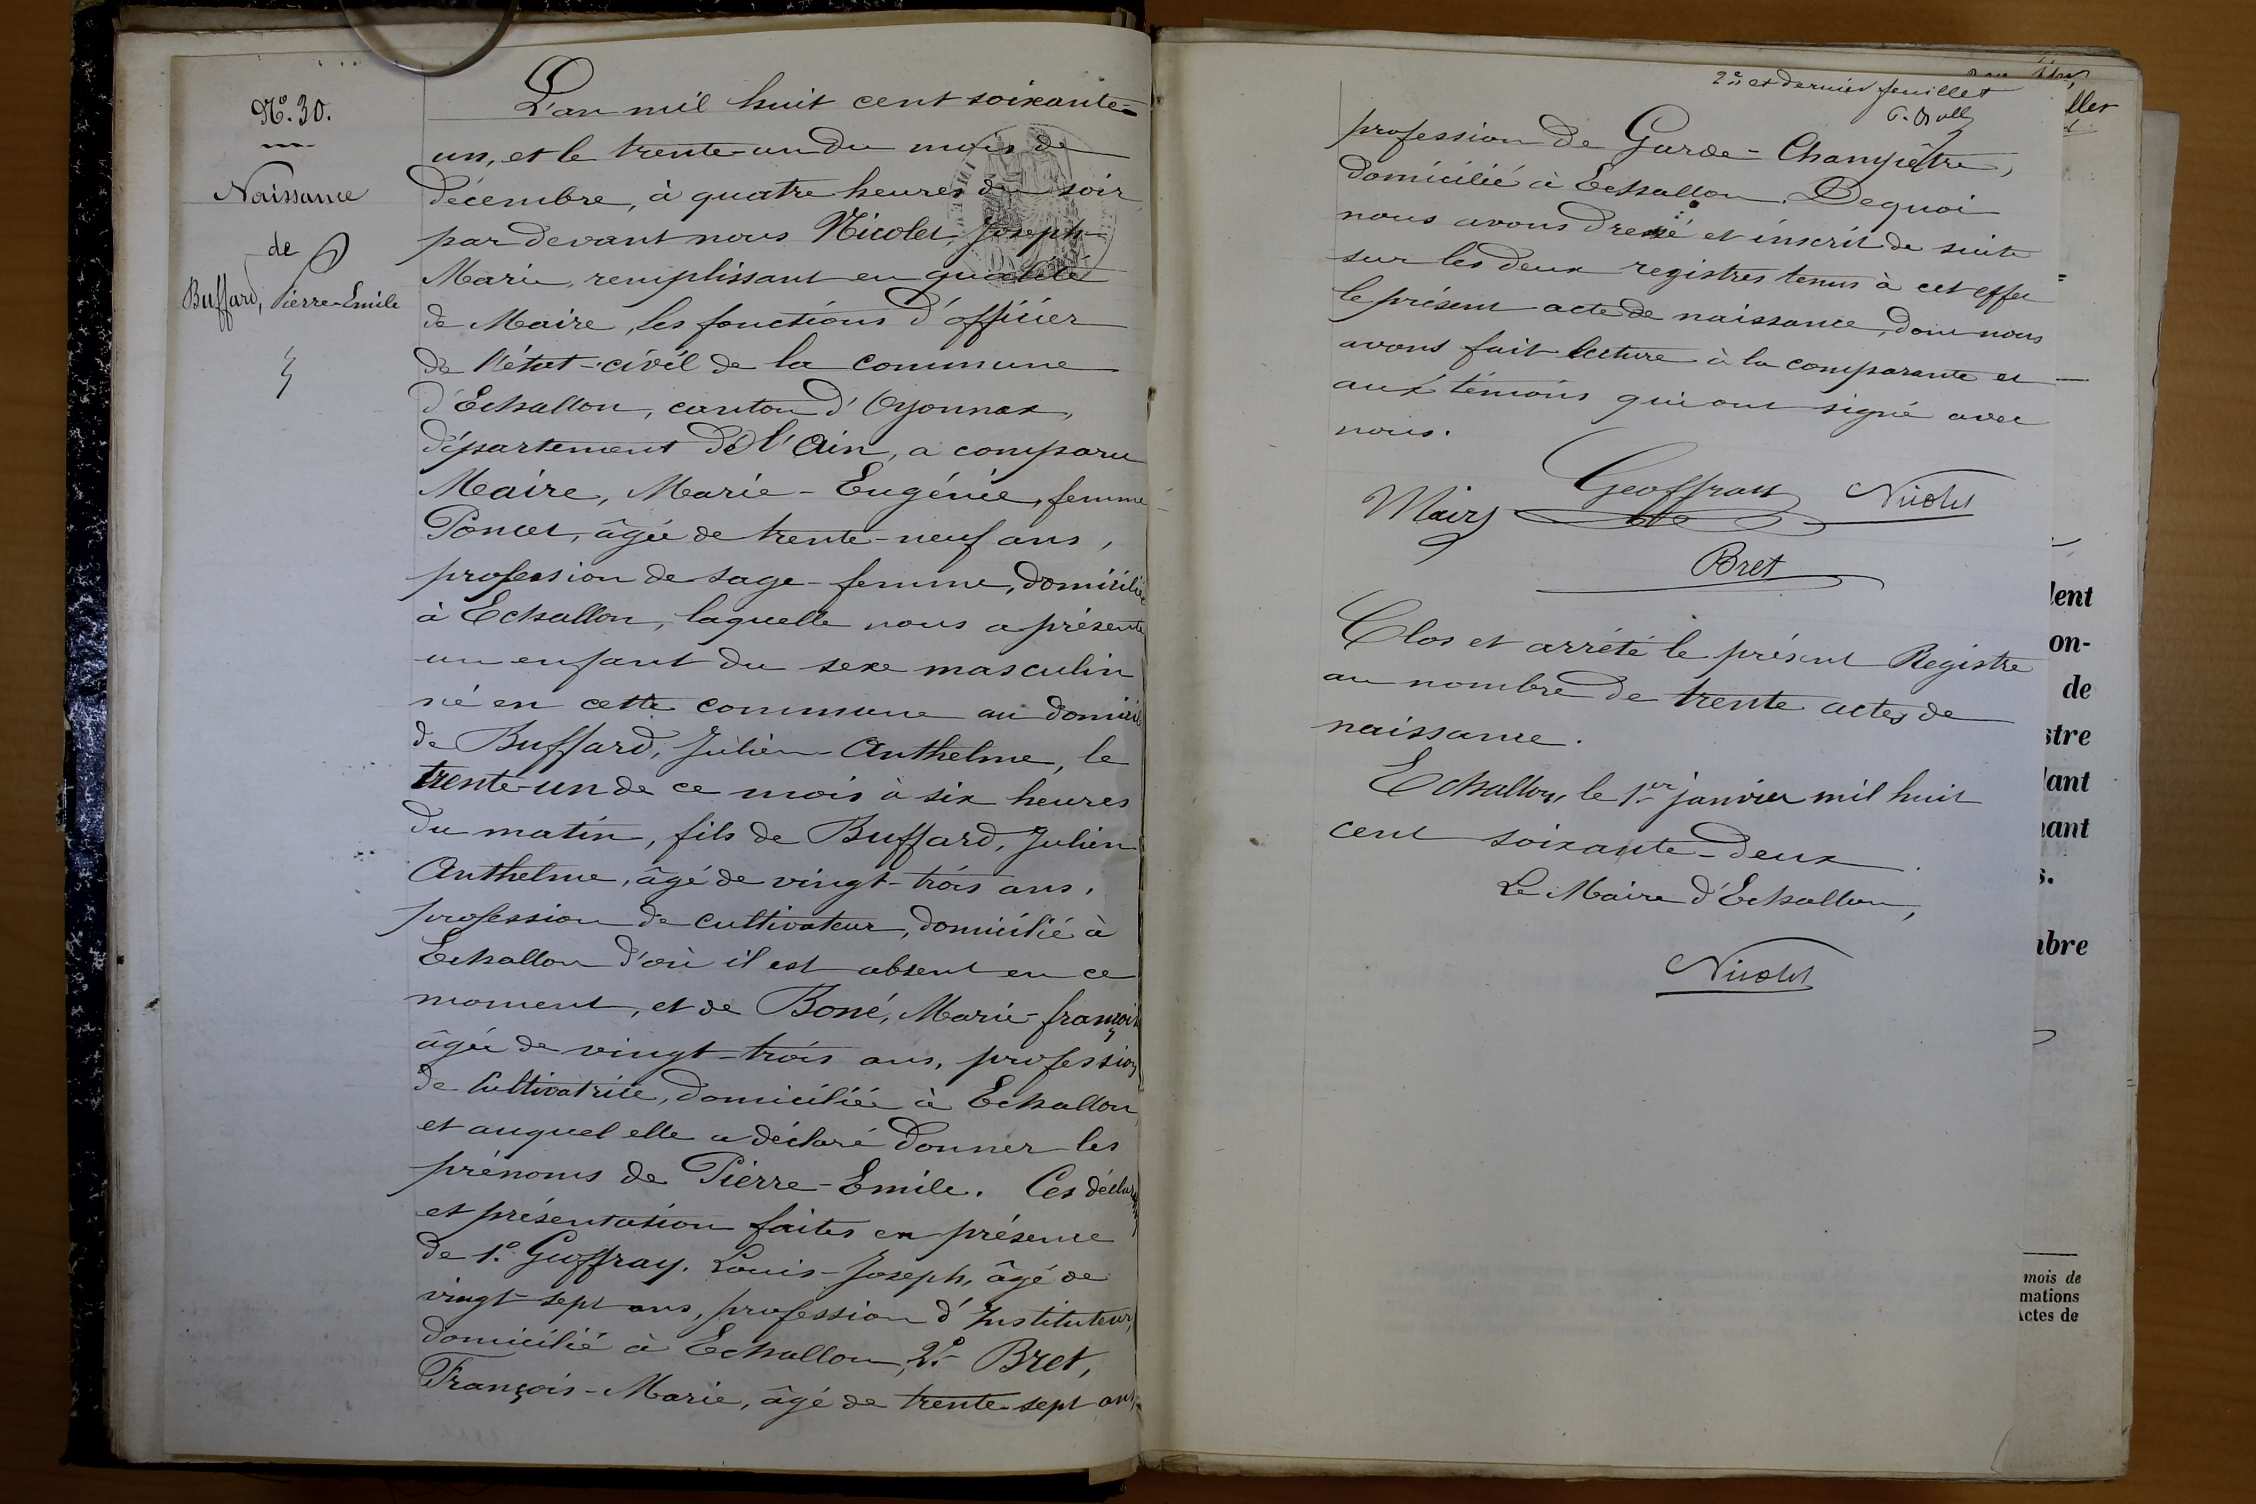 N.° 30.
Naissance
de
Buffard, Pierre-Emile
L'an mil huit cent soixante-
un, et le trente-un du mois de
décembre, à quatre heures du soir
par devant nous Nicolet, Joseph-
Marie, remplissant en qualité
de Maire, les fonctions d'officier
de l'état-civil de la commune
d'Echallon, canton d'Oyonnax,
département de l'Ain, a comparu
Maire, Marie-Eugénie, femme
Poncet, âgée de trente-neuf ans,
profession de sage-femme, domiciliée
à Echallon, laquelle nous a présenté
un enfant du sexe masculin
né en cette commune au domicile
de Buffard, Julien-Anthelme, le
trente-un de ce mois à six heures
du matin, fils de Buffard, Julien
Anthelme, âgé de vingt-trois ans,
profession de cultivateur, domicilié à
Echallon d'où il est absent en ce
moment, et de Boné, Marie-françoise
âgée de vingt-trois ans, profession
de Cultivatrice, domiciliée à Echallon,
et auquel elle a déclaré donner les
prénoms de Pierre-Emile. Ces déclaration
et présentation faites en présence
de 1.° Geoffray, Louis-Joseph, âgé de
vingt-sept ans, profession d'Instituteur,
domicilié à Echallon, 2.° Bret,
François-Marie, âgé de trente-sept ans,
2e et dernier feuillet
profession de Garde-Champêtre,
domicilié à Echallon. Dequoi
nous avons dressé et inscrit de suite
sur les deux registres tenus à cet effet
le présent acte de naissance, dont nous
avons fait lecture à la comparante et
aux témoins qui ont signé avec
nous.
Geoffray Nicolet
Maire
Bret
Clos et arrêté le présent Registre
au nombre de trente actes de
naissance.
Echallon, le 1er janvier mil huit
cent soixante-deux.
Le Maire d'Echallon,
Nicolet
ller
lent
on-
de
stre
lant
nant
s.
bre
mois de
mations
Actes de